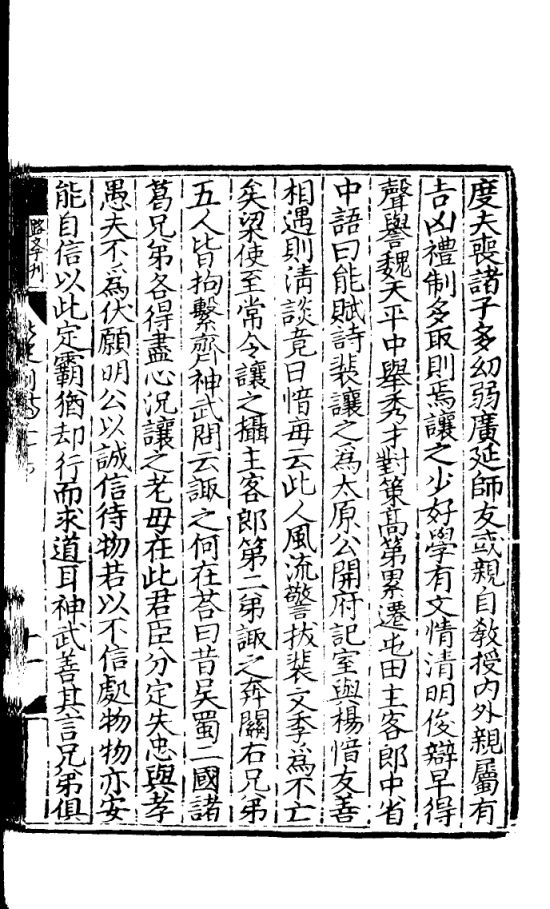 度夫喪諸子多幼弱廣延師友或親自教授内外親屬有
吉凶禮制多取則焉讓之少好學有文情清明俊辯早得
聲譽魏天平中舉秀才對策高第累遷屯田主客郎中省
中語曰能賦詩裴讓之爲太原公開府記室與楊愔友善
相遇則清談竟日愔每云此人風流警拔裴文季爲不亡
矣梁使至常令讓之攝主客郎第二弟諏之奔關右兄弟
五人皆拘繫齊神武問云諏之何在荅曰昔吴蜀二國諸
葛兄弟各得盡心況讓之老母在此君臣分定失忠與孝
愚夫不爲伏願明公以誠信待物若以不信處物物亦安
能自信以此定霸猶却行而求道耳神武善其言兄弟俱